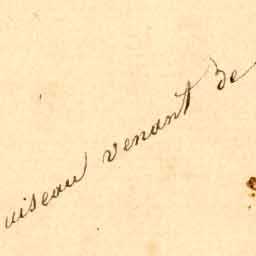 uiseau venant de